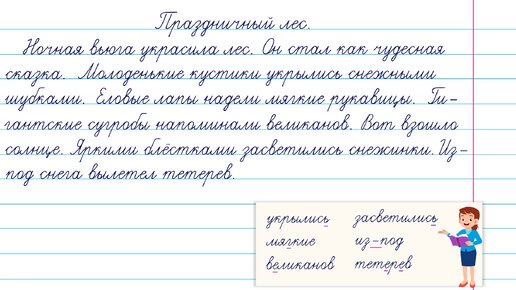 Праздничный лес.
Ночная вьюга украсила лес. Он стал как чудесная
сказка. Молоденькие кустики укрылись снежными
шубками. Еловые лапы надели мягкие рукавицы. Ги-
гантские сугробы напоминали великанов. Вот взошло
солнце. Яркими блёстками засветились снежинки. Из-
под снега вылетел тетерев.
укрылись засветились
мягкие из-под
великанов тетерев